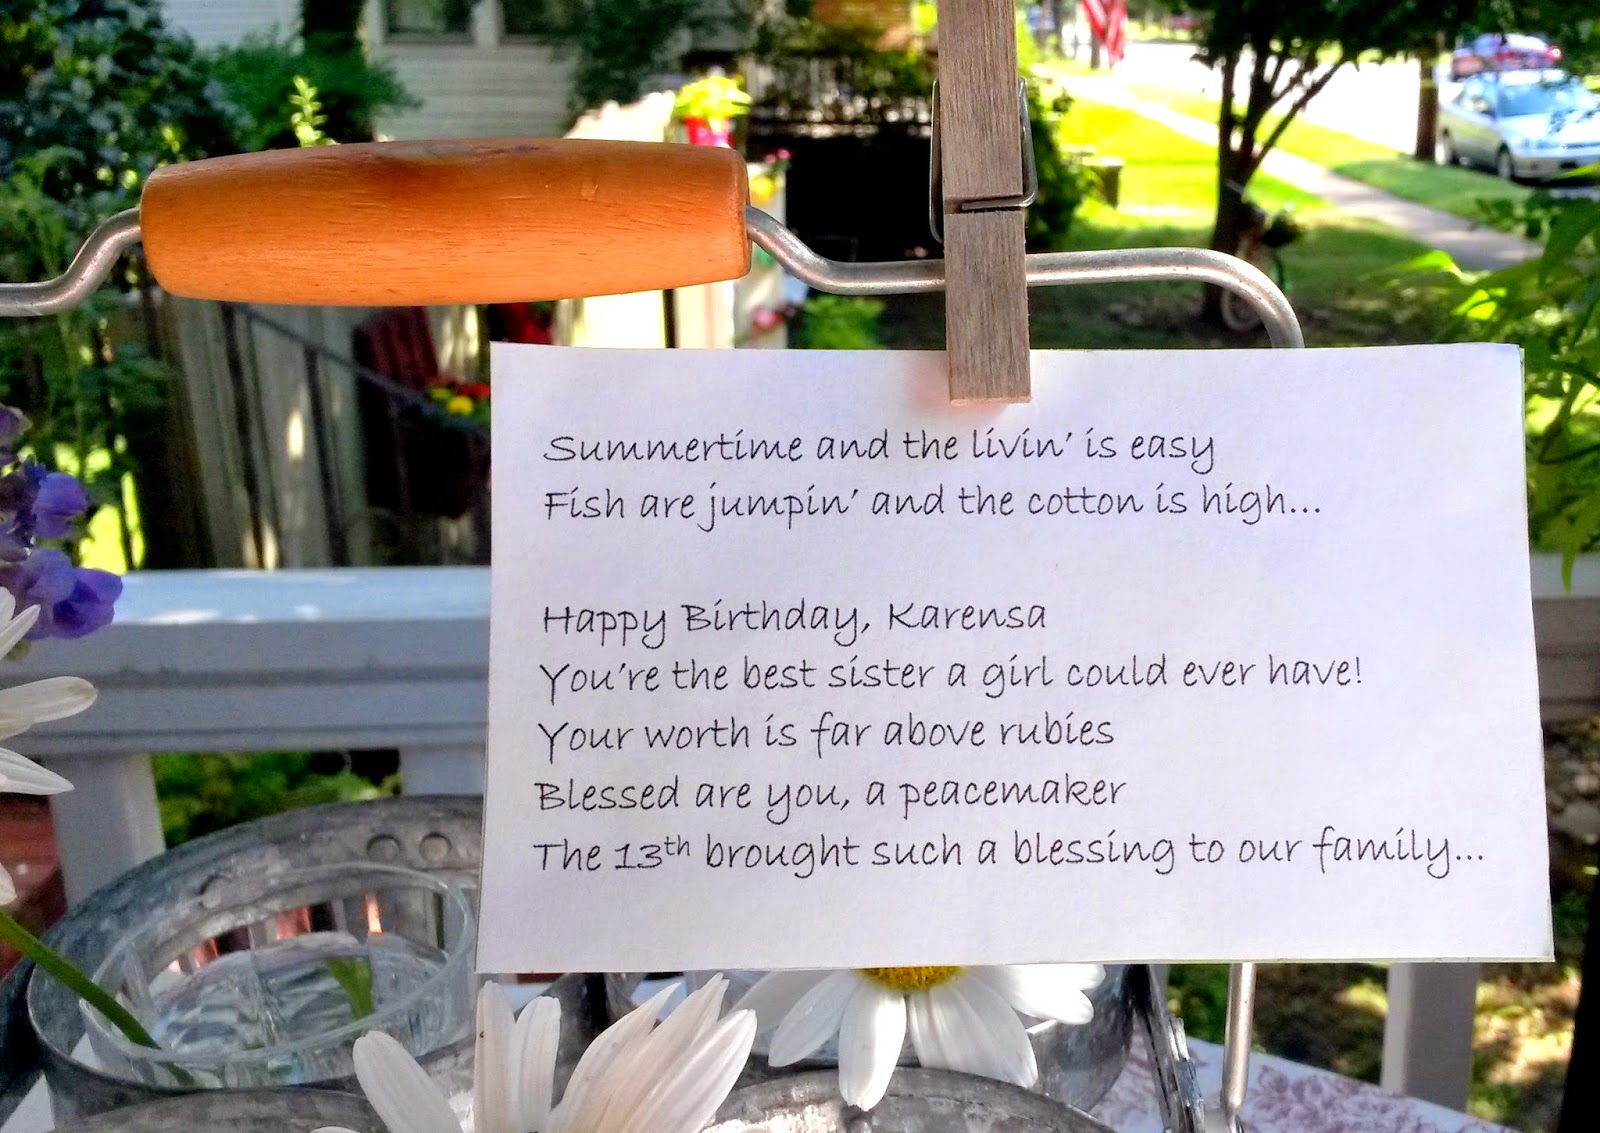 Summertime and the livin’ is easy
Fish are jumpin’ and the cotton is high...
Happy Birthday, Karensa
You’re the best sister a girl could ever have!
Your worth is far above rubies
Blessed are you, a peacemaker
The 13th brought such a blessing to our family...